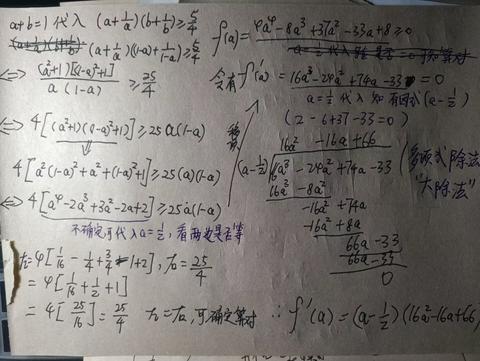 a+b=1 代入 (a+1/a)(b+1/b)≥5/4
(a+1/a)(1-a)+1/(1-a)≥5/4
⇔ (a²+1)[(1-a)²+1] / a(1-a) ≥ 25/4
⇔ 4[(a²+1)(1-a)²+1]≥25a(1-a)
4[a²(1-a)²+a²+(1-a)²+1]≥25(a)(1-a)
⇔ 4[a⁴-2a³+3a²-2a+2]≥25a(1-a)
不确定可代入a=1/2, 看两边是否等
左=4[1/16-1/4+3/4-1+2], 右=25/4
=4[1/16+1/2+1]
=4[25/16]=25/4 左=右, 可确定等对
移项
f(a)=4a⁴-8a³+37a²-33a+8≥0
a=1/2代入
令有f'(a)=16a³-24a²+74a-33=0
a=1/2代入知有因式(a-1/2)
(2-6+37-33=0)
16a² -16a+66
(a-1/2) 16a³-24a²+74a-33
16a³-8a²
-16a²+74a
-16a²+8a
66a-33
66a-33
0
(多项式除法
"大除法"
∴ f'(a)=(a-1/2)(16a²-16a+66)